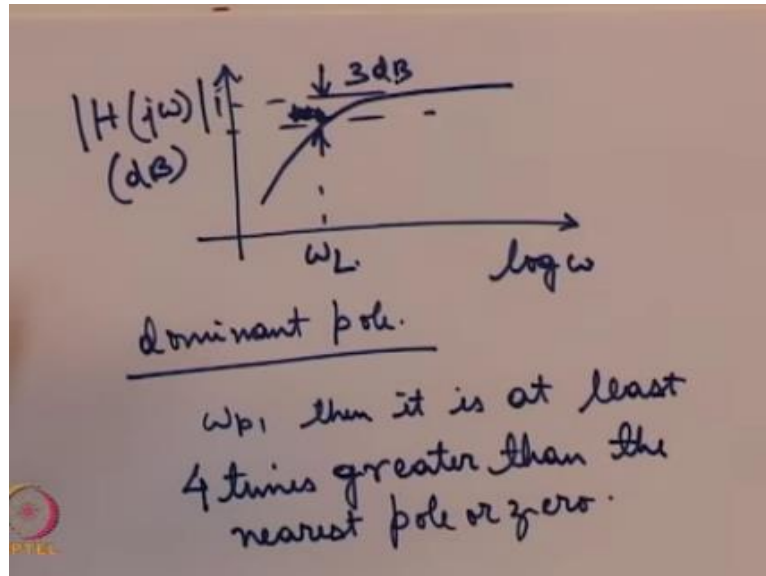 3dB
|H(jω)| 1
(dB)
ω_L.
log ω
dominant pole.
ω_p1 then it is at least
4 times greater than the
nearest pole or zero.
PTEL